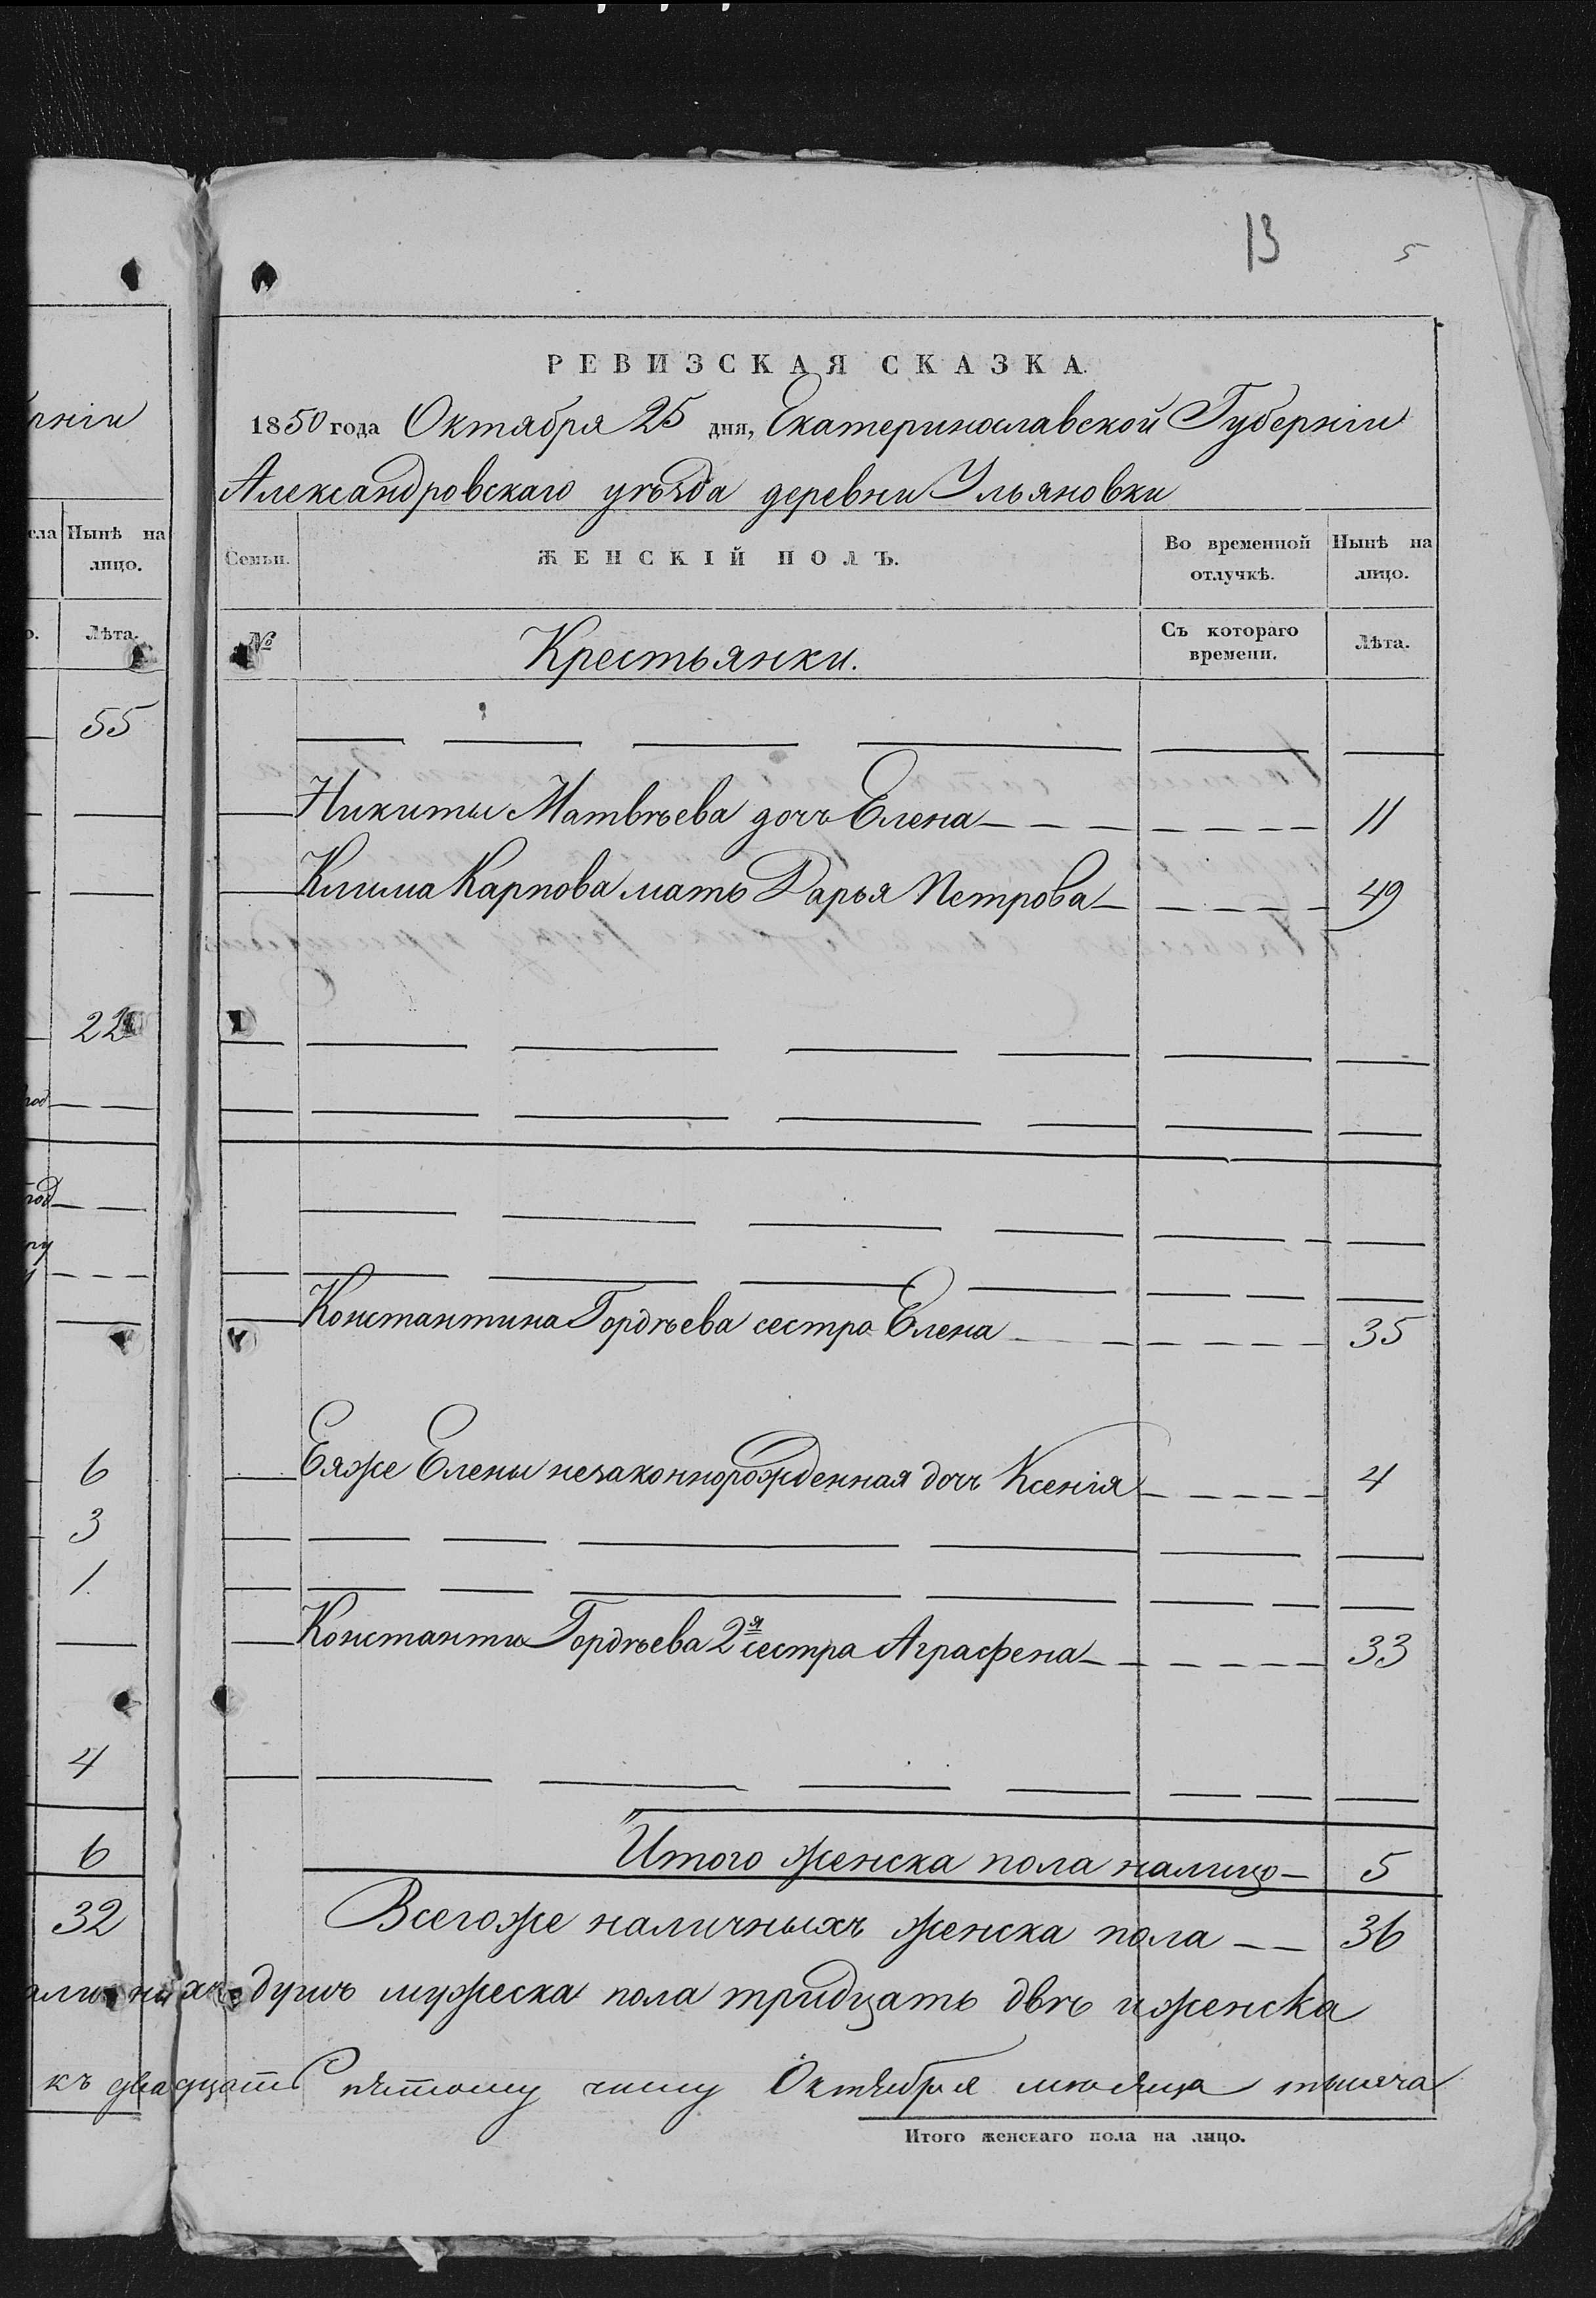 13 5
рніи
РЕВИЗСКАЯ СКАЗКА.
1850 года Октября 25 дня, Екатеринославской Губерніи
Александровскаго уѣзда деревни Ульяновки
сла Нынѣ на лицо.
Семьи. ЖЕНСКІЙ ПОЛЪ. Во временной отлучкѣ. Нынѣ на лицо.
Лѣта.
№ Крестьянки. Съ котораго времени. Лѣта.
55
Никиты Матвѣева дочь Елена 11
Клима Карпова мать Дарья Петрова 49
22
год
год
ру
Константина Гордѣева сестра Елена 35
6 Еяже Елены незаконнорожденная дочь Ксенія 4
3
1.
Константи Гордѣева 2я сестра Аграфена 33
4
6 Итого женска пола налицо 5
32 Всегоже наличныхъ женска пола 36
душъ мужеска пола тридцать двѣ и женска
къ двадцать пятому числу Октября мѣсяца тысяча
Итого женскаго пола на лицо.